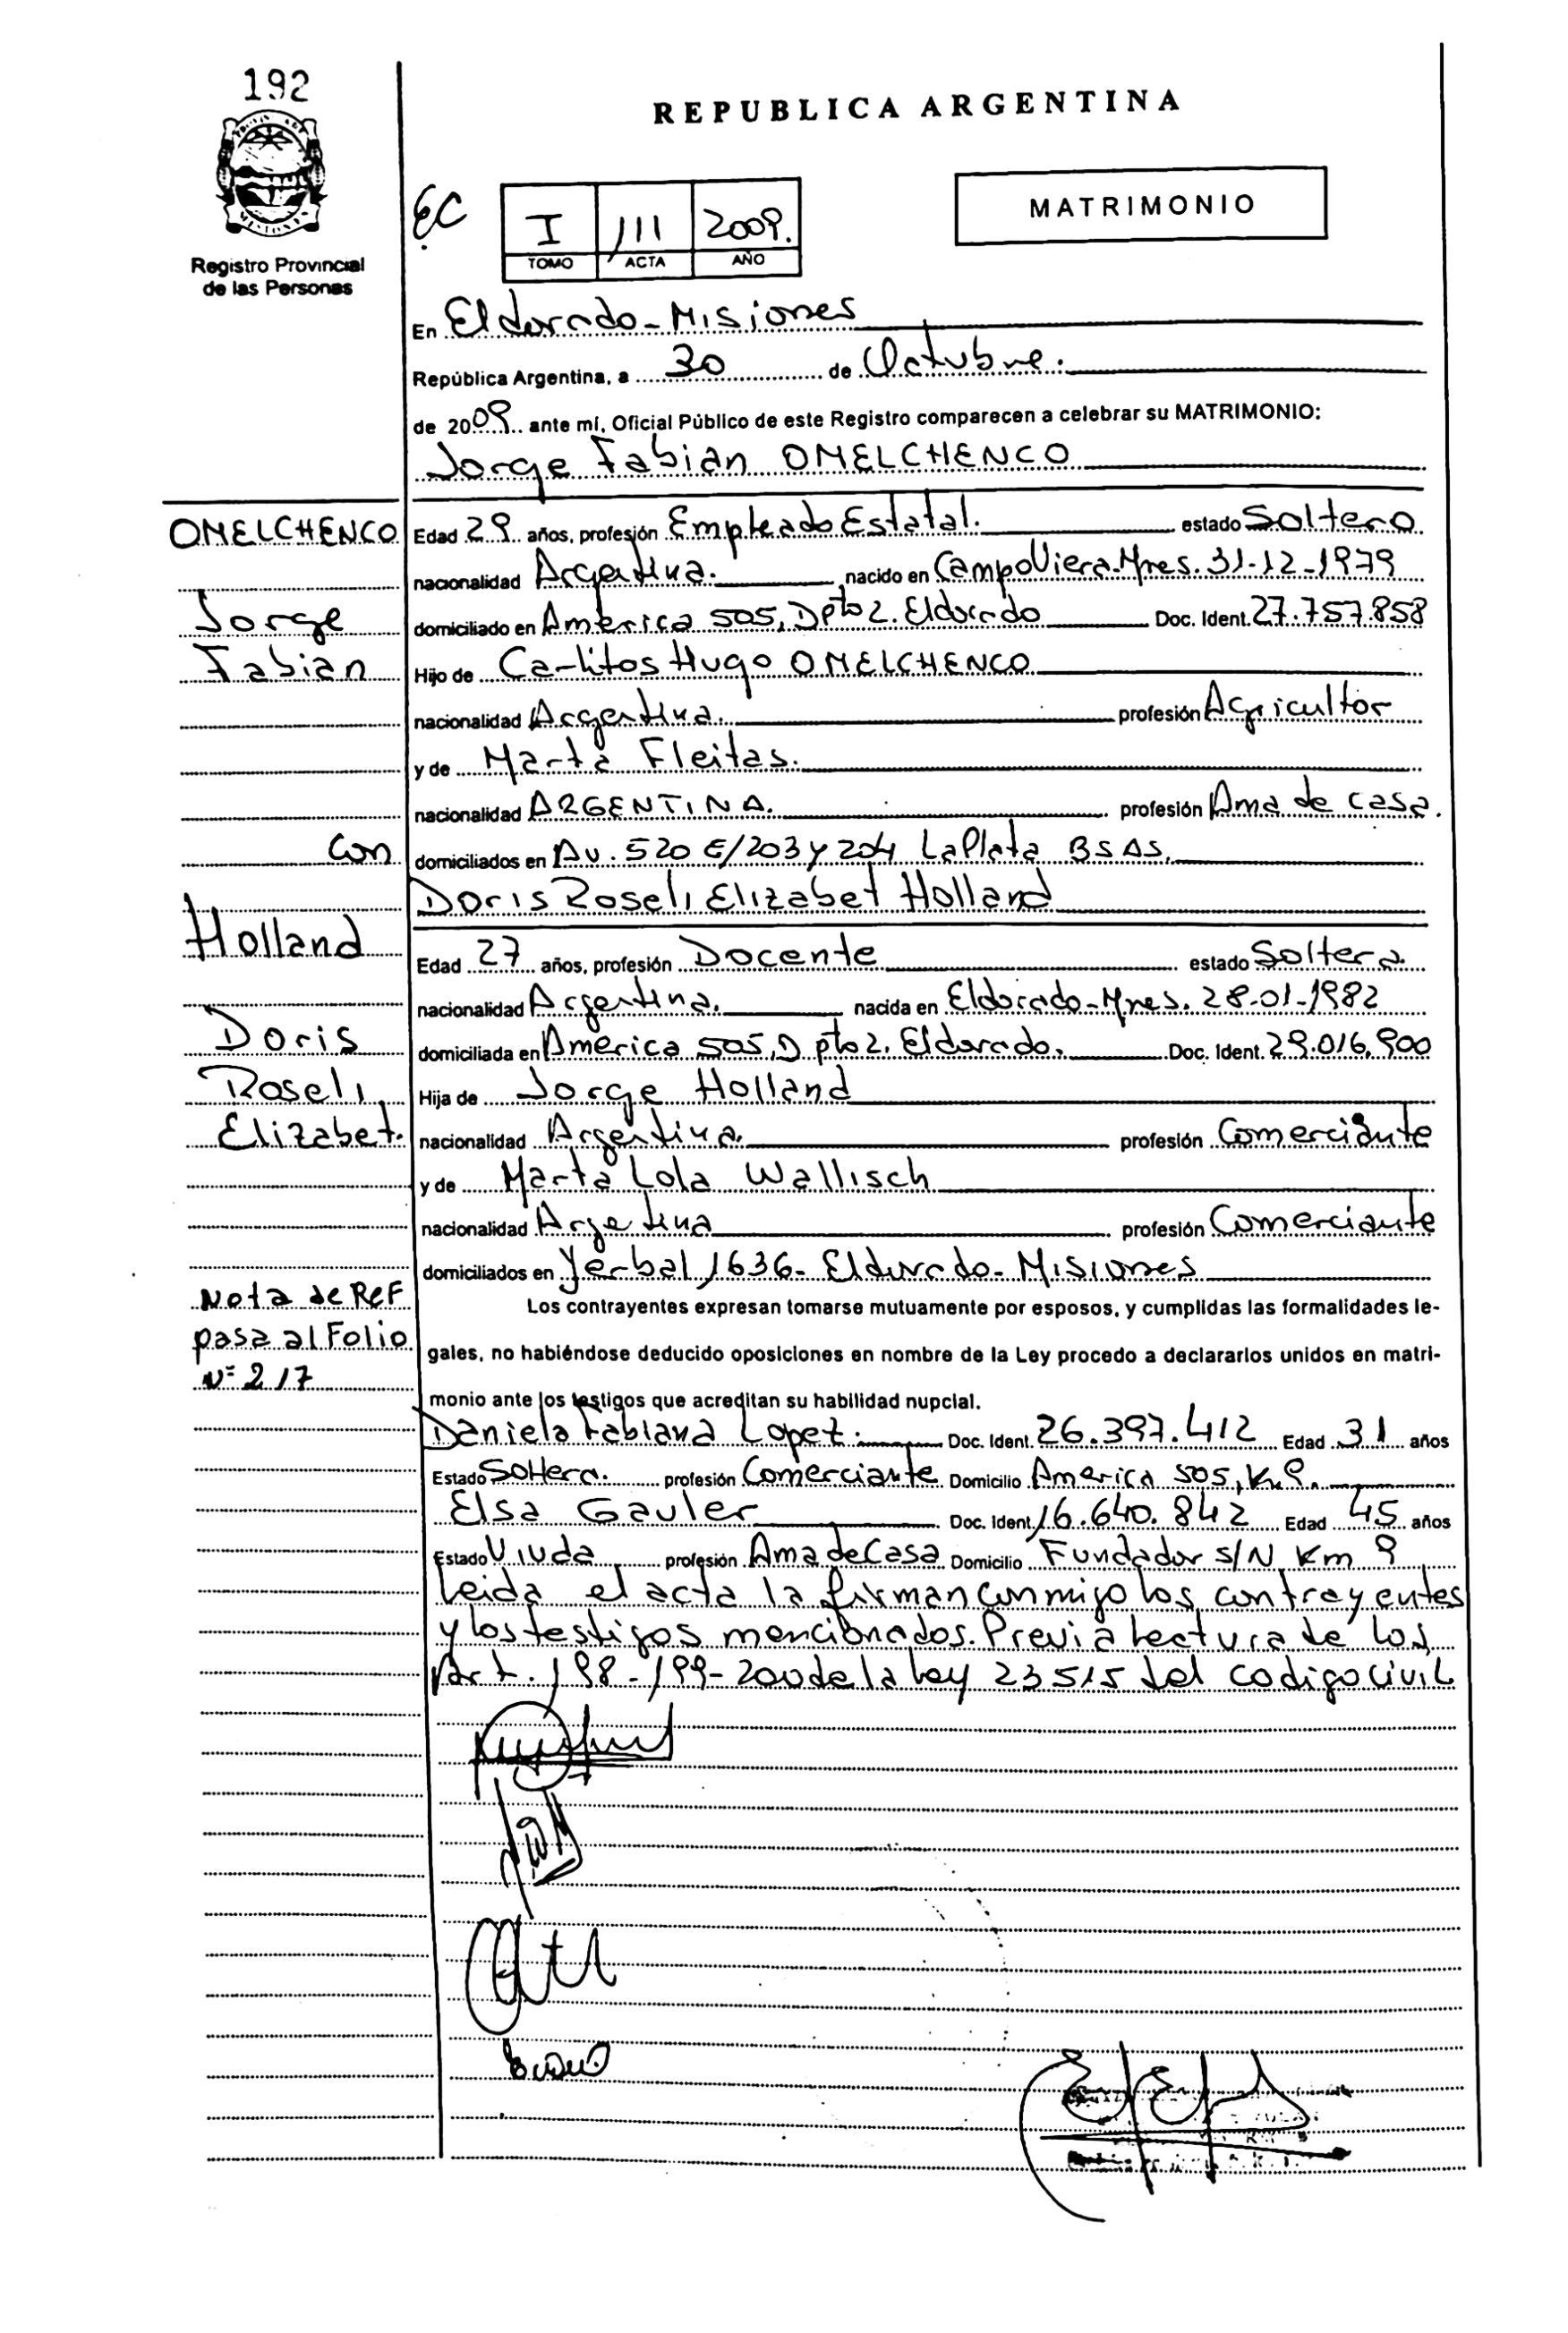 192
REPUBLICA ARGENTINA
MISIONES
Registro Provincial
de las Personas
EC
I 111 2009.
TOMO ACTA AÑO
MATRIMONIO
En Eldorado - Misiones
República Argentina, a 30 de Octubre.
de 2009 ante mí, Oficial Público de este Registro comparecen a celebrar su MATRIMONIO:
Jorge Fabian OMELCHENCO
OMELCHENCO
Jorge
Fabian
Edad 29 años, profesión Empleado Estatal. estado Soltero
nacionalidad Argentina. nacido en Campo Viera. Mnes. 31-12-1979
domiciliado en America 505, Dpto 2. Eldorado Doc. Ident. 27.757.858
Hijo de Carlitos Hugo OMELCHENCO
nacionalidad Argentina. profesión Agricultor
y de Marta Fleitas.
nacionalidad ARGENTINA. profesión Ama de casa.
domiciliados en Av. 520 E/203 y 204 La Plata BS AS.
con
Holland
Doris
Roseli,
Elizabet.
Doris Roseli Elizabet Holland
Edad 27 años, profesión Docente estado Soltera.
nacionalidad Argentina. nacida en Eldorado-Mnes. 28-01-1982
domiciliada en America 505, Dpto 2. Eldorado. Doc. Ident. 29.016.900
Hija de Jorge Holland
nacionalidad Argentina. profesión Comerciante
y de Marta Lola Wallisch
nacionalidad Argetina profesión Comerciante
domiciliados en Yerbal 1636- Eldorado- Misiones
Nota de Ref
pasa al Folio
Nº 217
Los contrayentes expresan tomarse mutuamente por esposos, y cumplidas las formalidades le-
gales, no habiéndose deducido oposiciones en nombre de la Ley procedo a declararlos unidos en matri-
monio ante los testigos que acreditan su habilidad nupcial.
Daniela Fabiana Lopez. Doc. Ident. 26.397.412 Edad 31 años
Estado Soltera. profesión Comerciante Domicilio America 505, K.9.
Elsa Gauler Doc. Ident 16.640.842 Edad 45 años
Estado Viuda profesión Ama de Casa Domicilio Fundador S/N Km 9
Leida el acta la firman conmigo los contrayentes
y los testigos mencionados. Previa lectura de los
Art. 198-199-200 de la ley 23515 del codigo civil